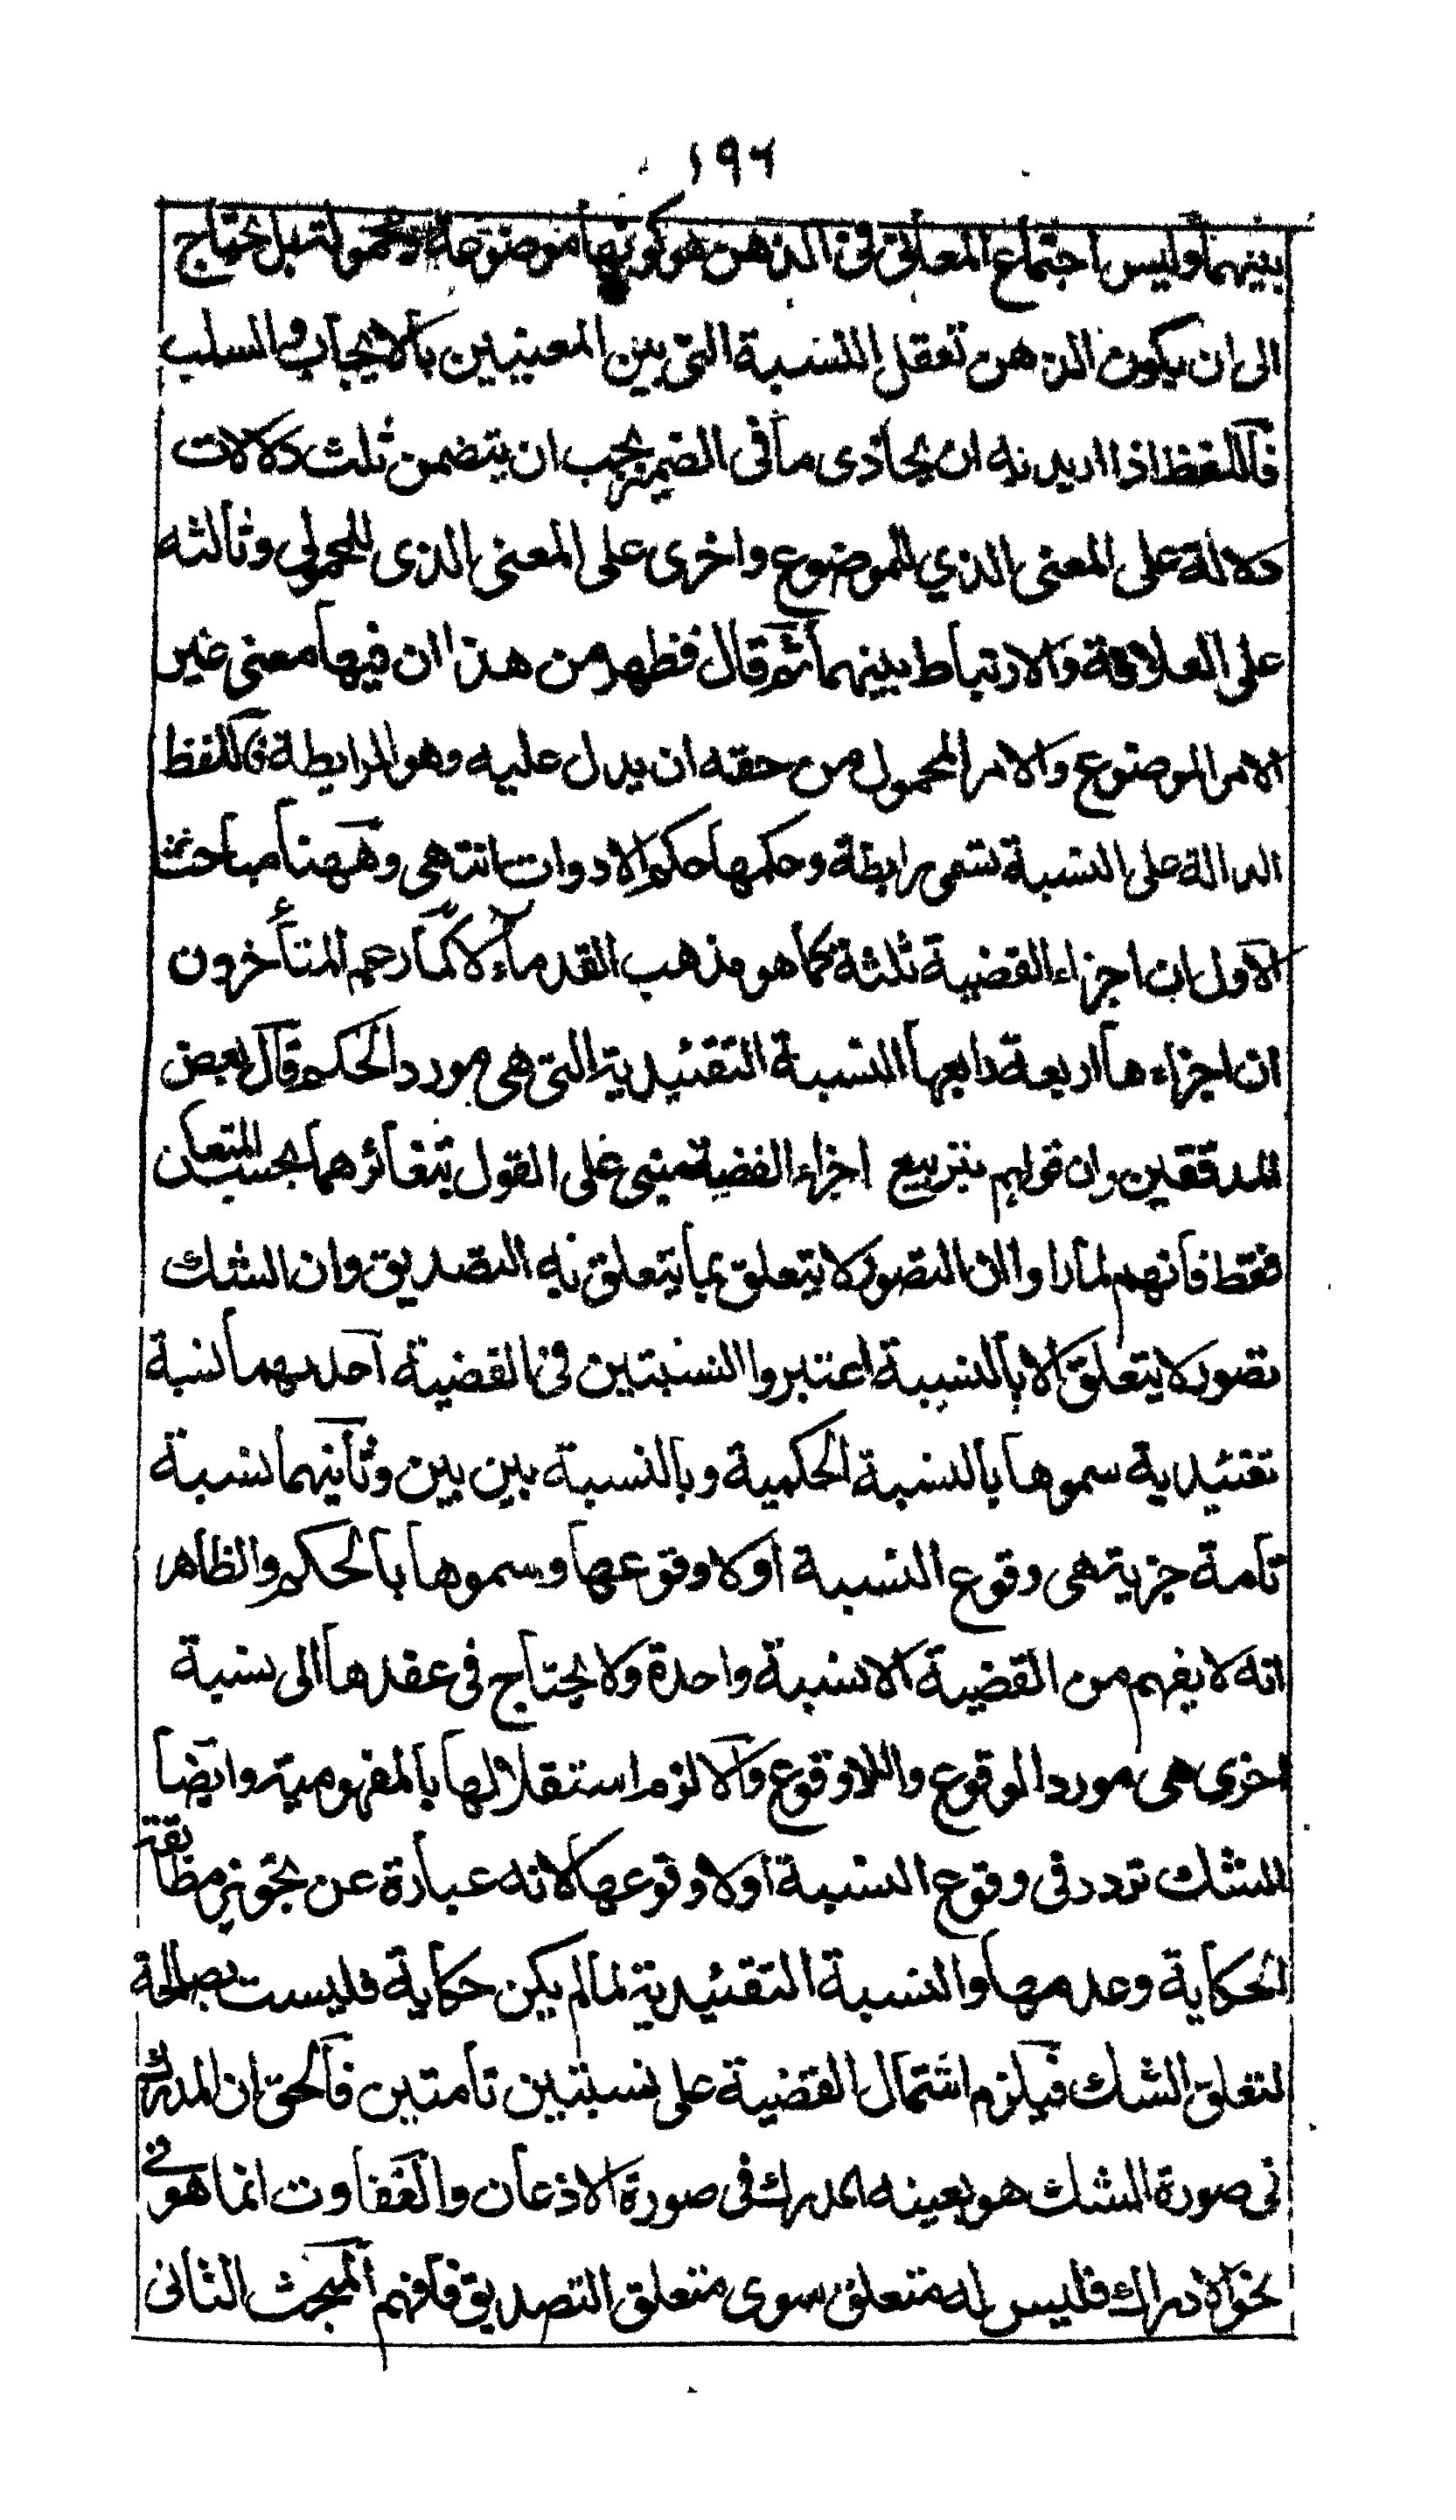 ١٩٢
بينهما وليس اجتماع المعانى فى الذهن هو كونها موضوعة ومحمولة بل يحتاج
الى ان يكون الذهن تعقل النسبة التى بين المعنيين بالايجاب والسلب
فاللفظ اذا اريد به ان يحاذى ما فى الضمير يجب ان يتضمن ثلث دلالات
دلالة على المعنى الذي للموضوع واخرى على المعنى الذى للمحمول وثالثه
على العلاقة والارتباط بينهما ثم قال فظهر من هذا ان فيها معنى غير
الامر الموضوع والامر المحمول من حقه ان يدل عليه وهو الرابطة فاللفظ
الدالة على النسبة تسمى رابطة وحكمها حكم الادوات انتهى وههنا مباحث
الاول ان اجزاء القضية ثلثة كما هو مذهب القدماء لا كما زعم المتأخرون
ان اجزاءها اربعة رابعها النسبة التقئيدية التى هى مورد الحكم قال بعض
المدققين وان قولهم بتربيع اجزاء القضية مبنى على القول بتغائرهما بحسب المتعلق
فقط فانهم لما راوا ان التصور لا يتعلق بما يتعلق به التصديق وان الشك
تصور لا يتعلق الا بالنسبة اعتبروا النسبتين فى القضية احدىهما نسبة
تقئيدية سموها بالنسبة الحكمية وبالنسبة بين بين وثانيهما نسبة
تامة جزية هى وقوع النسبة اولا وقوعها وسموها بالحكم والظاهر
انه لا يفهم من القضية الا نسبة واحدة ولا يحتاج فى عقدها الى نسبة
اخرى هى مورد الوقوع واللاوقوع والا لزم استقلالها بالمفهومية وايضا
الشك تردد فى وقوع النسبة اولا وقوعها لانه عبارة عن تجويز مطابقة
الحكاية وعدمها والنسبة التقئيدية لما لم يكن حكاية فليست بصالحة
لتعلق الشك فيلزم اشتمال القضية على نسبتين تامتين فالحق ان المدرك
فى صورة الشك هو بعينه المدرك فى صورة الاذعان والتفاوت انما هو فى
نحو الادراك فليس له متعلق سوى متعلق التصديق فافهم المبحث الثانى